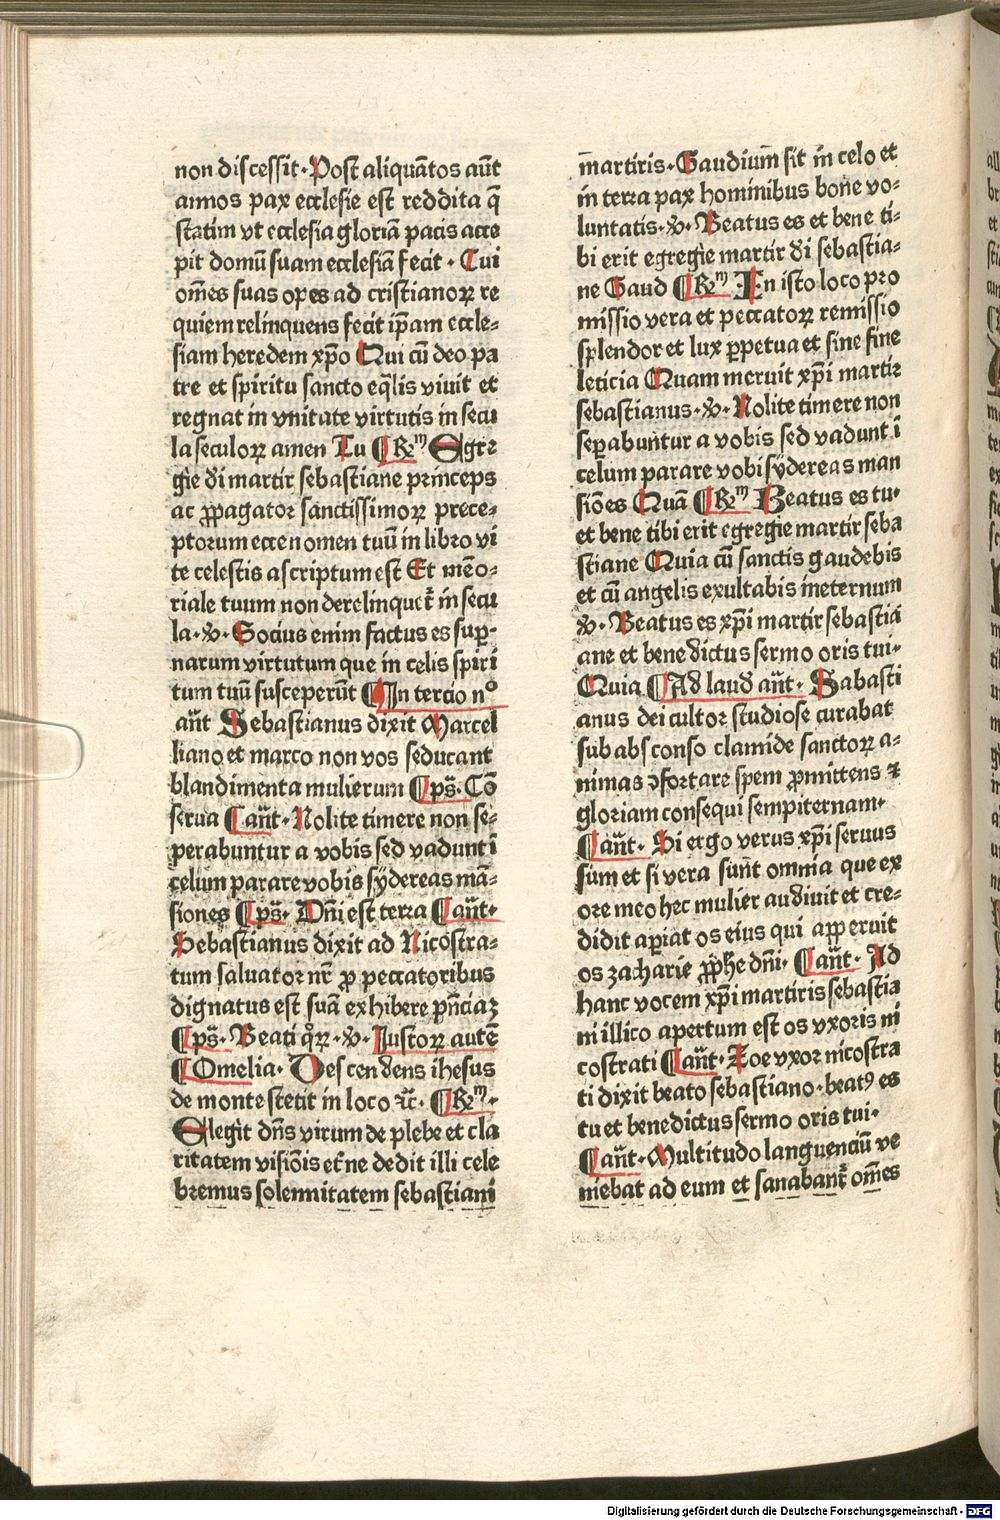 non discessit· Post aliquātos aūt
annos pax ecclesie est reddita q̄
statim vt ecclesia gloriā pacis acce
pit domū suam ecclesiā fecit· Cui
om̄es suas opes ad cristianoꝝ re
quiem relinquens fecit ip̄am eccle-
siam heredem xp̄o Qui cū deo pa
tre et spiritu sancto eq̄lis viuit et
regnat in vnitate virtutis in secu
la seculoꝝ amen Tu ¶ Rꝫm Egre
gie di martir sebastiane princeps
ac ꝓpagator sanctissimoꝝ prece-
ptorum ecce nomen tuū in libro vi
te celestis ascriptum est Et mēo-
riale tuum non derelinquet̄ in secu
la·℣· Socius enim factus es suꝑ-
narum virtutum que in celis spiri
tum tuū susceperūt ¶ In tercio nº
an̄t Sebastianus dixit Marcel
liano et marco non vos seducant
blandimenta mulierum ¶ ps̄· Cō
serua ¶ an̄t· Nolite timere non se-
perabuntur a vobis sed vadunt ī
celum parare vobis sÿdereas mā-
siones ¶ ps̄· Dn̄i est terra ¶ an̄t·
Sebastianus dixit ad Nicostra-
tum saluator nr̄ ꝓ peccatoribus
dignatus est suā exhibere pn̄ciaꝫ
¶ ps̄· Beati qͦꝝ·℣· Iustoꝝ autē
¶ Omelia· Descendens ihesus
de monte stetit in loco ⁊c̄· ¶ Rꝫm·
Elegit dn̄s virum de plebe et cla
ritatem visiōis et̄ne dedit illi cele
bremus solennitatem sebastiani
m̄artiris· Gaudium̄ sit in celo et
in terra pax hominibus bone vo-
luntatis·℣· Beatus es et bene ti-
bi erit egregie martir di sebastia-
ne Gaud ¶ Rꝫm In isto loco pro
missio vera et peccatoꝝ remissio
splendor et lux ꝑpetua et sine fine
leticia Quam meruit xp̄i martir
sebastianus·℣· Nolite timere non
seꝑabuntur a vobis sed vadunt ī
celum parare vobis sÿdereas man
siōes Quā ¶ Rꝫm Beatus es tu·
et bene tibi erit egregie martir seba
stiane Quia cū sanctis gaudebis
et cū angelis exultabis ineternum
℣· Beatus es xp̄i martir sebastia
ane et benedictus sermo oris tui·
Quia ¶ Ad laud an̄t· Sabasti
anus dei cultor studiose curabat
sub absconso clamide sanctoꝝ a-
nimas ꝯfortare spem ꝓmittens ⁊
gloriam consequi sempiternam·
¶ an̄t· Si ergo verus xp̄i seruus
sum et si vera sunt omnia que ex
ore meo hec mulier audiuit et cre-
didit aꝑiat os eius qui apꝑeruit
os zacharie ꝓph̄e dn̄i· ¶ an̄t· Ad
hanc vocem xp̄i martiris sebastia
ni illico apertum est os vxoris ni
costrati ¶ an̄t· Zoe vxor nicostra
ti dixit beato sebastiano· beatꝰ es
tu et benedictus sermo oris tui·
¶ an̄t· Multitudo languenciū ve
niebat ad eum et sanabant̄ om̄es
Digitalisierung gefördert durch die Deutsche Forschungsgemeinschaft - DFG